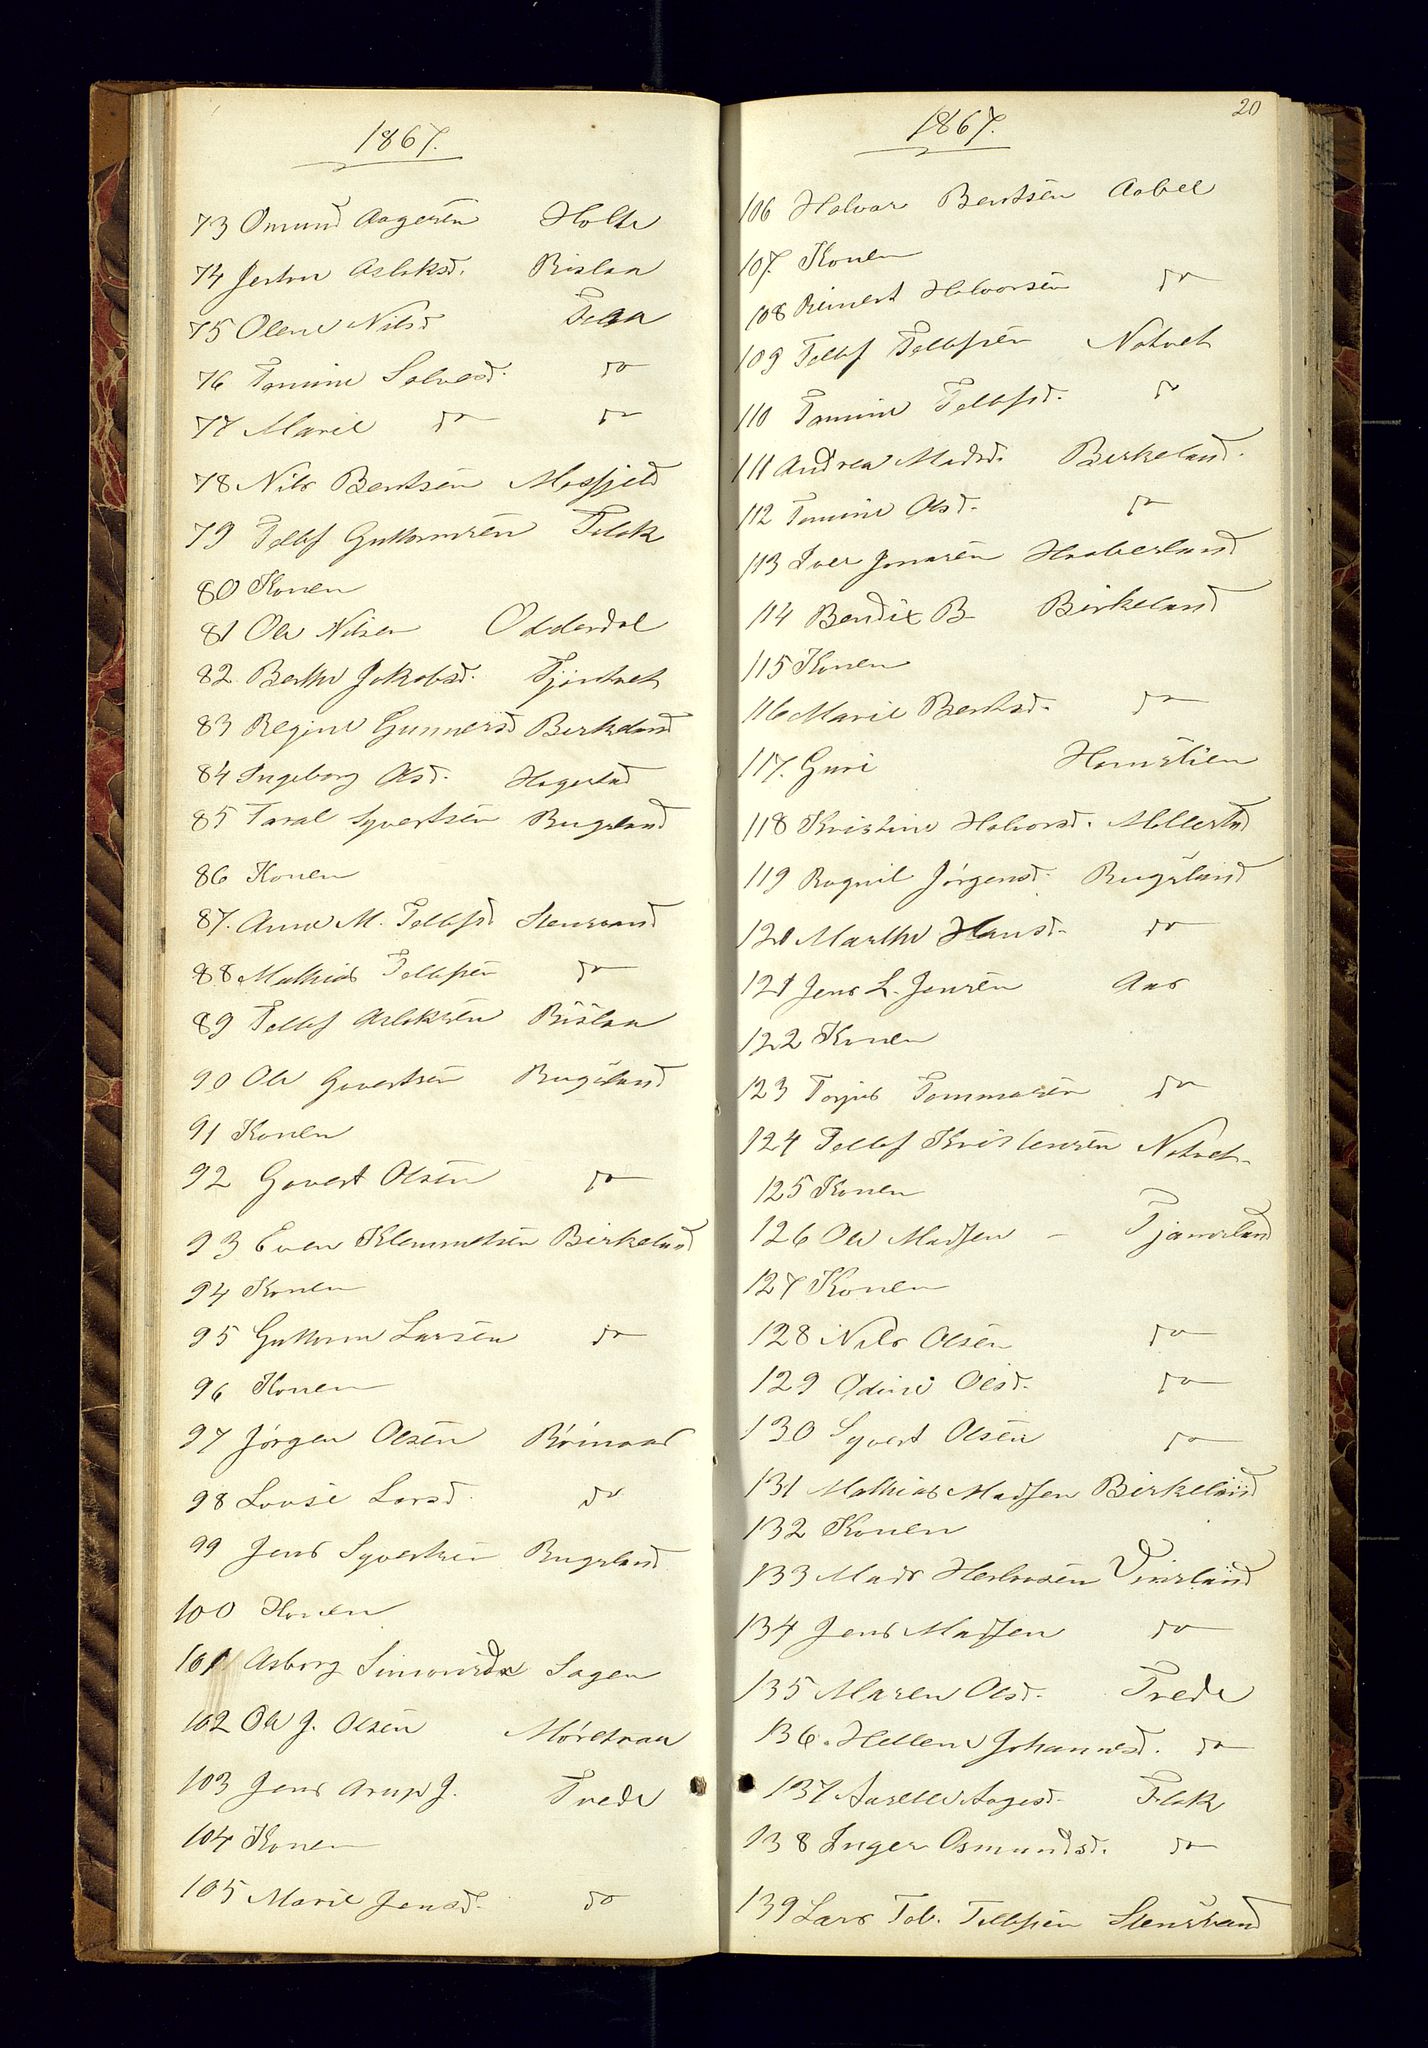 1867.
73 Omund Aagesen Holte
74 Jertru Aslaksd. Rislaa
75 Olene Nilsd Felaa
76 Tomine Salvesd. do
77 Marie do do
78 Nils Bentsen Mosfjeld
79 Tellef Guttormsen Flak
80 Konen
81 Ole Nilsen Odderdal
82 Berthe Jakobsd. Tjøntvet
83 Regine Gunnersd Birkeland
84 Ingeborg Olsd. Hogestad
85 Taral Syvertsen Rugsland
86 Konen
87. Anne M. Tellefsd Stensvand
88 Mathias Tellefsen do
89 Tellef Aslaksen Rislaa
90 Ole Govertsen Rugsland
91 Konen
92 Govert Olsen do
93 Even Klemmetsen Birkeland
94 Konen
95 Guttorm Larsen do
96 Konen
97 Jørgen Olsen
98 Lovise Larsd. do
99 Jens Syvertsen Rugsland
100 Konen
101 Asborg Simonsd Sagen
102 Ole J. Olsen Møretraa
103 Jens Arup J. Trede
104 Konen
105 Marie Jensd. do
20
1867.
106 Halvor Bentsen Aabel
107. Konen
108 Reinert Halvorsen do
109 Tellef Tellefsen Natvet
110 Tomine Tellefsd. do
111 Andrea Madsd. Birkeland.
112 Tomine Olsd. do
113 Iver Jonasen Haaberland
114 Bendix B. Birkeland
115 Konen
116 Marie Bentsd. do
117. Guri Hamslien
118 Kristine Halvorsd. Mollestad
119 Ragnil Jørgensd. Rugsland
120 Marthe Hansd. do
121 Jens L. Jensen Aas
122 Konen
123 Torjus Tommasen do
124 Tellef Kristensen Natvet.
125 Konen
126 Ole Madsen - Tjamsland
127 Konen
128 Nils Olsen do
129 Odine Olsd. do
130 Syvert Olsen do
131 Mathias Madsen Birkeland
132 Konen
133 Mads Herlovsen Vinsland
134 Jens Madsen do
135 Maren Olsd. Trede
136. Hellene Johannesd. do
137 Aaselle Aagesd. Flak
138 Inger Osmundsd. do
139 Lars Tob. Tellefsen Stensvand